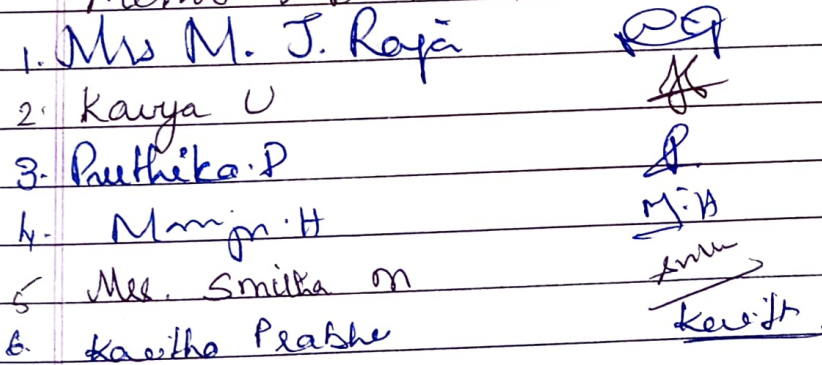 1. Mrs M. J. Raja
2. Kavya U
3. Preethika.P
4. Manju.H M.H
5 Mrs. Smitha M
6. Kavitha Prabhu Kavith